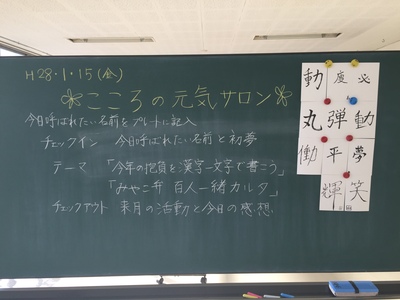 H28・1・15(金)
こころの元気サロン
今日呼ばれたい名前をプレートに記入
チェックイン 今日呼ばれたい名前と初夢
テーマ 「今年の抱負を漢字一文字で書こう」
「みやこ弁 百人一緒カルタ」
チェックアウト 来月の活動と今日の感想
動 度 必
丸 弾 動
働 平 夢
輝 笑